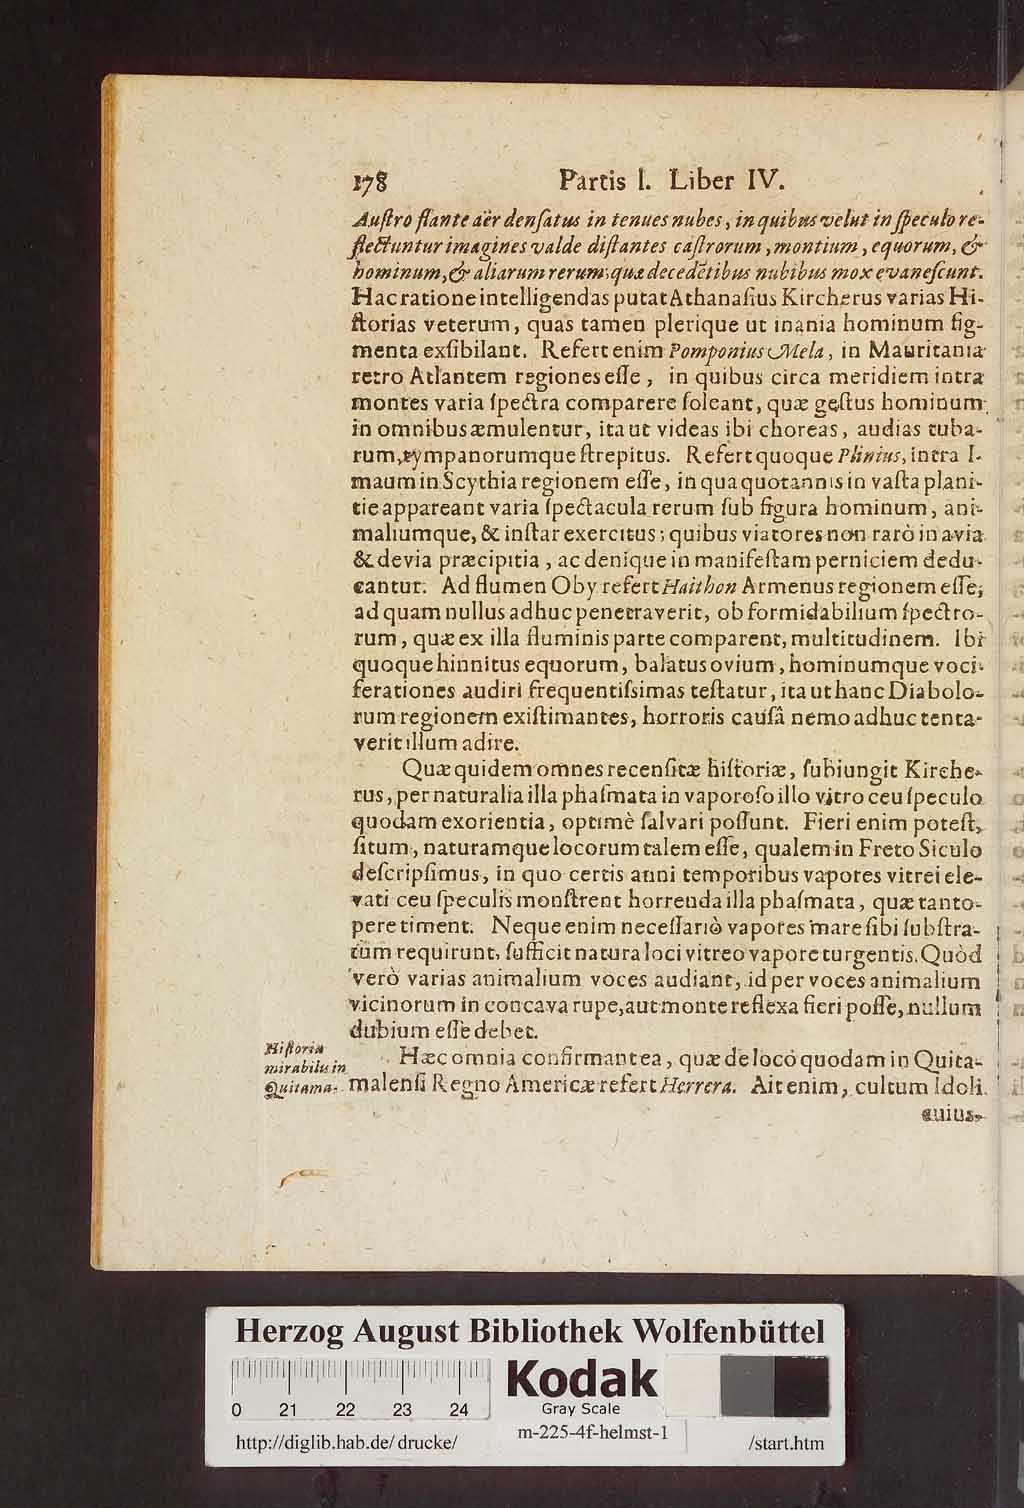 178 Partis I. Liber IV.
Auſtro flante aër denſatus in tenues nubes, in quibus velut in ſpeculo re-
flectuntur imagines valde diſtantes caſtrorum, montium, equorum, &
hominum, & aliarum rerum; quæ decedētibus nubibus mox evaneſcunt.
Hac ratione intelligendas putat Athanaſius Kircherus varias Hi-
ſtorias veterum, quas tamen plerique ut inania hominum fig-
menta exſibilant. Refert enim Pomponius Mela, in Mauritania
retro Atlantem regiones eſſe, in quibus circa meridiem intra
montes varia ſpectra comparere ſoleant, quæ geſtus hominum
in omnibus æmulentur, ita ut videas ibi choreas, audias tuba-
rum, tympanorumque ſtrepitus. Refert quoque Plinius, intra I-
maum in Scythia regionem eſſe, in qua quotannis in vaſta plani-
tie appareant varia ſpectacula rerum ſub figura hominum, ani-
maliumque, & inſtar exercitus; quibus viatores non rarò in avia
& devia præcipitia, ac denique in manifeſtam perniciem dedu-
cantur. Ad flumen Oby refert Haithon Armenus regionem eſſe,
ad quam nullus adhuc penetraverit, ob formidabilium ſpectro-
rum, quæ ex illa fluminis parte comparent, multitudinem. Ibi
quoque hinnitus equorum, balatus ovium, hominumque voci-
ferationes audiri frequentiſsimas teſtatur, ita ut hanc Diabolo-
rum regionem exiſtimantes, horroris cauſâ nemo adhuc tenta-
verit illum adire.
Quæ quidem omnes recenſitæ hiſtoriæ, ſubiungit Kirche-
rus, per naturalia illa phaſmata in vaporoſo illo vitro ceu ſpeculo
quodam exorientia, optimè ſalvari poſſunt. Fieri enim poteſt,
ſitum, naturamque locorum talem eſſe, qualem in Freto Siculo
deſcripſimus, in quo certis anni temporibus vapores vitrei ele-
vati ceu ſpeculis monſtrent horrenda illa phaſmata, quæ tanto-
pere timent. Neque enim neceſſariò vapores mare ſibi ſubſtra-
tum requirunt, ſufficit natura loci vitreo vapore turgentis. Quòd
verò varias animalium voces audiant, id per voces animalium
vicinorum in concava rupe, aut monte reflexa fieri poſſe, nullum
dubium eſſe debet.
Hiſtoria
mirabilis in
Quitama-
Hæc omnia confirmant ea, quæ de loco quodam in Quita-
malenſi Regno Americæ refert Herrera. Ait enim, cultum Idoli
cuius-
Herzog August Bibliothek Wolfenbüttel
0 21 22 23 24
Kodak
Gray Scale
http://diglib.hab.de/drucke/ m-225-4f-helmst-1 /start.htm